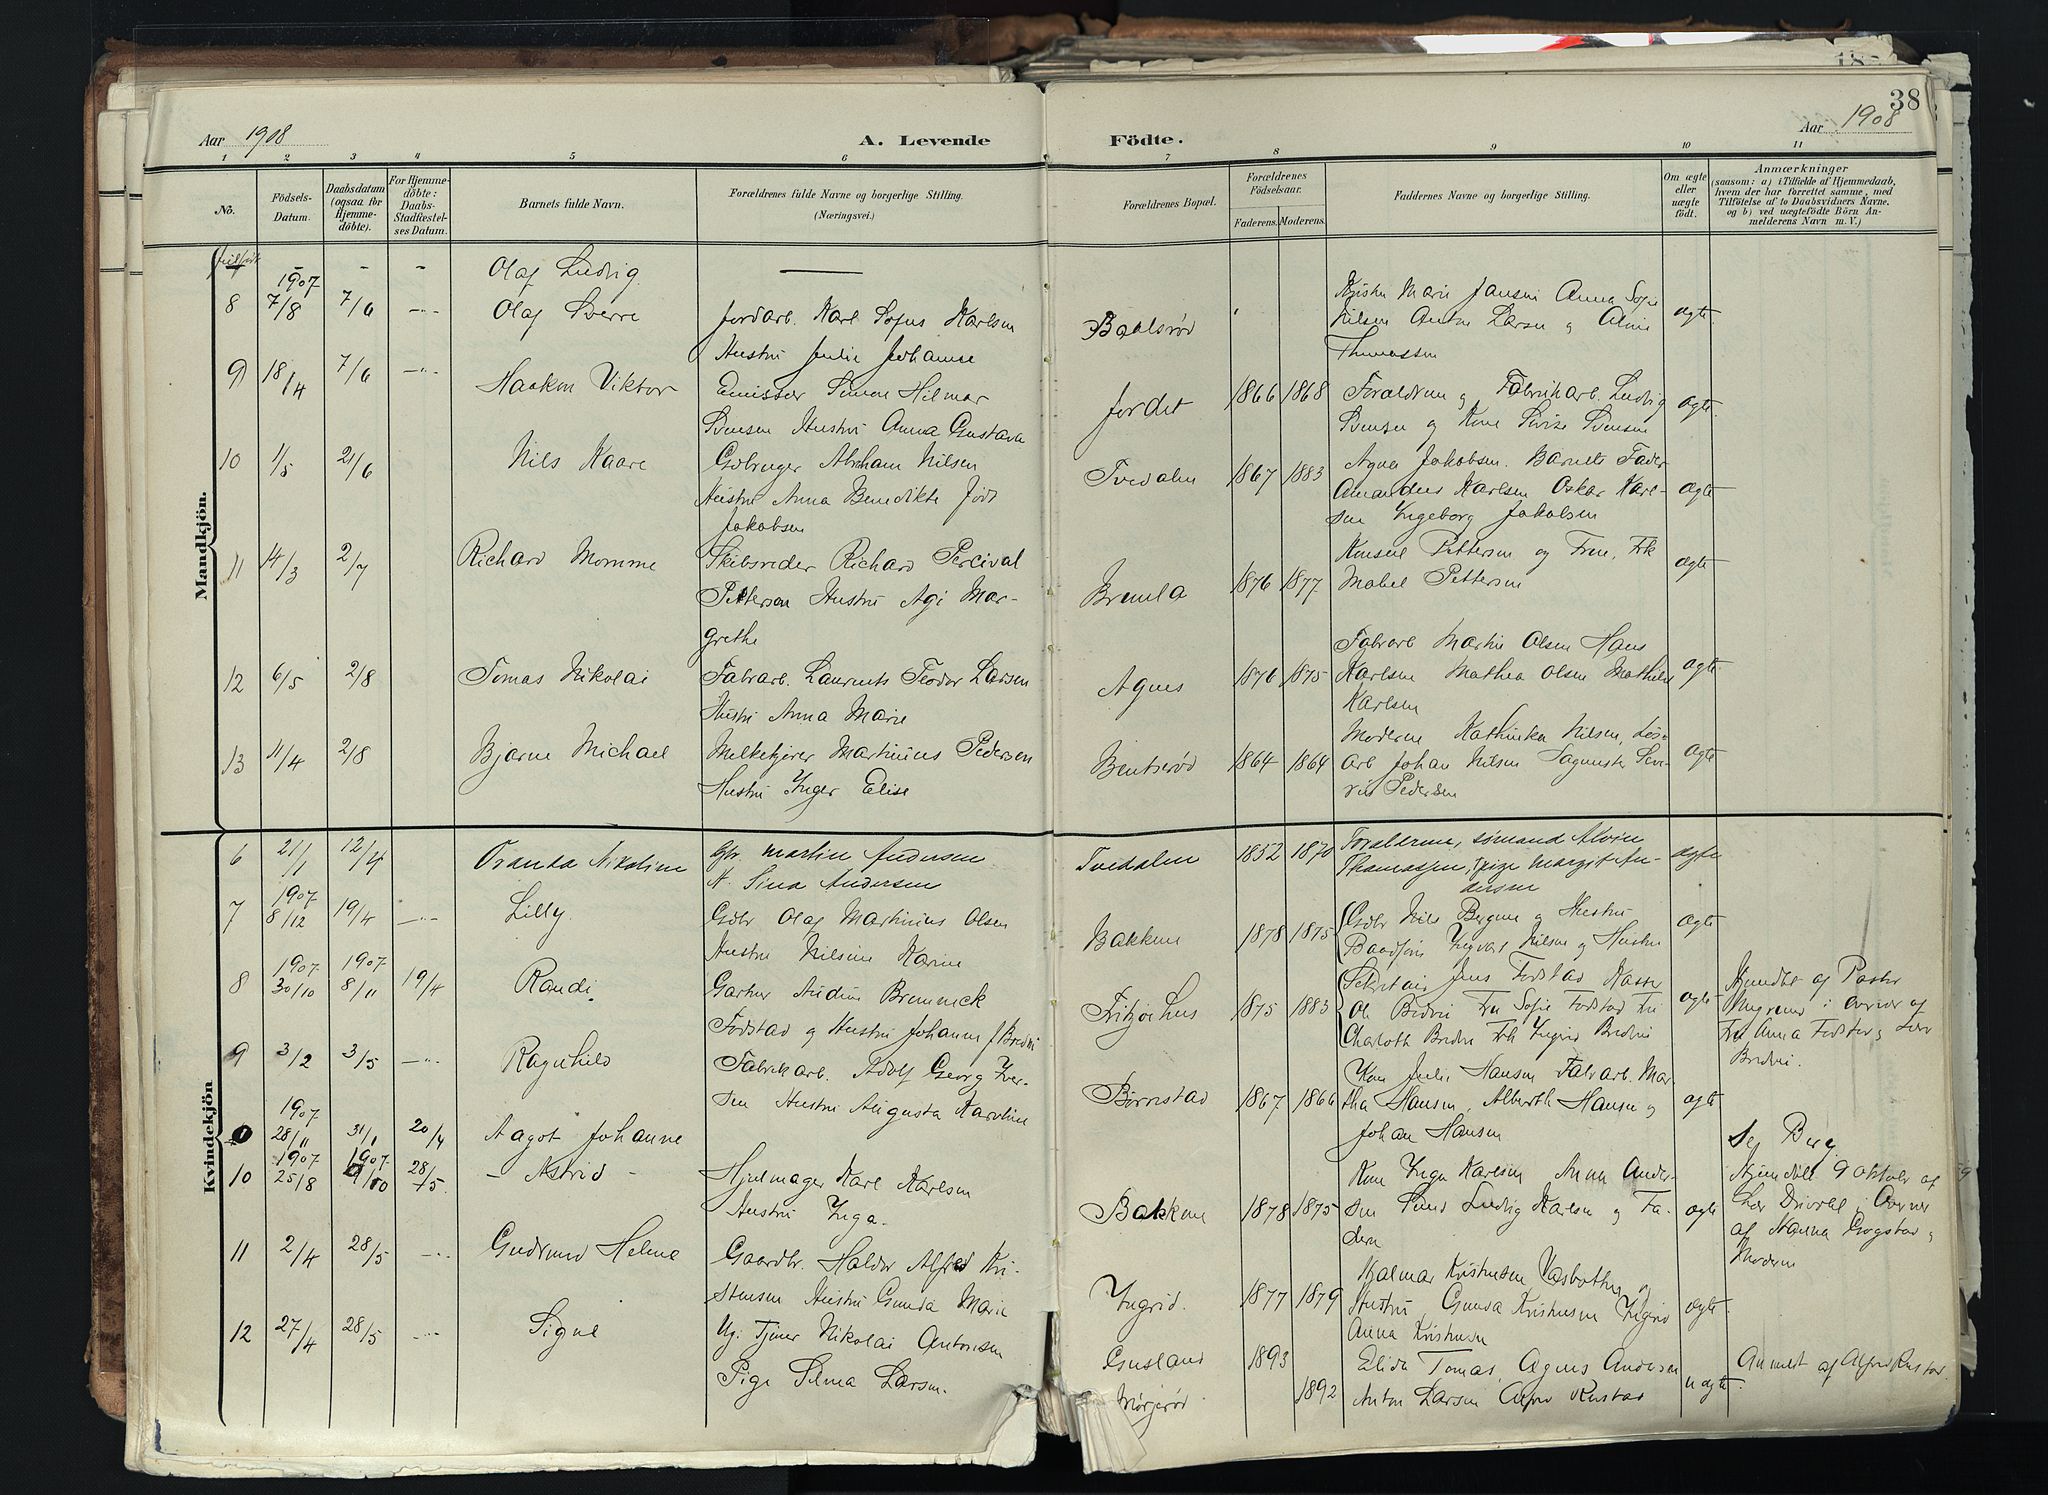 38
Aar 1908
A. Levende Födte.
Aar 1908
1 2 3 4 5 6 7 8 9 10 11
No.
Födsels-
Datum.
Daabsdatum
(ogsaa for
Hjemme-
döbte).
For Hjemme-
döbte:
Daabs-
Stadfæstel-
ses Datum.
Barnets fulde Navn.
Forældrenes fulde Navne og borgerlige Stilling.
(Næringsvei.)
Forældrenes Bopæl.
Forældrenes
Födselsaar.
Faderens. Moderens.
Faddernes Navne og borgerlige Stilling.
Om ægte
eller
uægte
født.
Anmærkninger
(saasom: a) i Tilfælde af Hjemmedaab,
hvem der har forrettet samme, med
Tilföielse af to Daabsvidners Navne,
og b) ved uægtefödte Börn An-
melderens Navn m. V.)
Mandkjön.
- - Olaf Ludvig —
8 1907 7/8 7/6 -"- Olaf Sverre
Jordarb. Karl Sofus Karlsen
Hustru Julie Johanne
Baalsrød
Marie Jansen Anna Sofie
Nilsen Anton Larsen og
Thomassen
ægte.
9 18/4 7/6 -"- Haakon Viktor
Emissær Simon Hilmar
Svensen Hustru Anna Gustava
Jordet 1866 1868
Forældrene og Fabrikarb. Ludvig
Svensen og Kone Lovise Svensen
ægte.
10 1/5 21/6 Nils Kaare
Gdbruger Abraham Nilsen
Hustru Anna Benedikte født
Jakobsen
Tvedalen 1867 1883
Agna Jakobsen. Barnets Fader
Amandus Karlsen Oskar Karl-
sen Ingeborg Jakobsen
ægte
11 14/3 2/7 Richard Momme
Skibsreder Richard Percival
Petterson Hustru Agi Mar-
grethe
Brunla 1876 1877
Konsul Petterson og Frue, Frk
Mabel Petterson
ægte
12 6/5 2/8 Tomas Nikolai
Fabrarb. Laurents Teodor Larsen
Hustru Anna Marie
Agnes 1876 1875
Fabrarb Martin Olsen Hans
Karlsen Mathea Olsen Mathilde
Karlsen
ægte
13 11/4 2/8 Bjarne Michael
Melkekjører Martinius Pedersen
Hustru Inger Elise
Bentserød 1864 1864
Moderen Kathinka Nilsen, Løs-
arb Johan Nilsen Sagmester Seve-
rin Pedersen
ægte
Kvindekjön
6 21/1 12/4 Oranta Nikoline
Gbr. Martin Andersen
H. Sina Andersen
Tvedalen 1852 1870
Forælderne, sømand Alvin
Thomassen, pige Margit An-
dersen
ægte
7 1907 8/12 19/4 -"- Lilly.
Gdbr Olaf Martinius Olsen
Hustru Nilsine Karine
Bakkene 1878 1875
Gdbr Nils Bergene og Hustru
Ingvald Nilsen og Hustru
ægte
8 1907 30/10 1907 8/11 19/4 Randi.
Gartner Audun
Fodstad og Hustru Johanne f Bredvei
Fritzøehus 1875 1883
Sekretair Jens Fodstad
Ole Fru Sofie Fodstad Fru
Charloth Frk Ingrid
ægte
Hjemdbt af Pastor
i Overvær af
Fru Anna Fodstad og
9 3/2 3/5 -"- Ragnhild
Fabrikarb. Adolf Georg Iver-
sen Hustru Augusta Karoline
Børnestad 1867 1866
Kone Julie Hansen Fabrarb. Mar-
tha Hansen, Alberth Hansen og
Johan Hansen
ægte
1907 28/11 31/1 20/4 Aagot Johanne
Se Berg
10 1907 25/8 1907 9/10 28/5. - Astrid -
Hjulmager Karl Karlsen
Hustru Inga.
Bakkene 1878 1875
Kone Inga Karlsen Anna Ander-
sen Ludvig Karlsen og Fa-
deren
ægte
Hjemdøbt 9 Oktober af
i Overvær
af Hanna Gogstad og
Moderen
11 2/4 28/5 -"- Gudrund Helene
Gaardbr. Haldor Alfred Kri-
stensen Hustru Gunda Marie
Ingrid. 1877 1879
Hjalmar Kristensen Vasbotten og
Hustru, Gunda Kristensen Ingrid
Anna Kristensen
ægte.
12 27/4 28/5 -"- Signe
Ug. Tjener Nikolai Antonsen
Pige Selma Larsen.
Gusland 1893
1892
Elida Tomas, Agnes Andersen
Anton Larsen Alfred Rustad
uægte.
Anmeldt af Alfred Rustad.